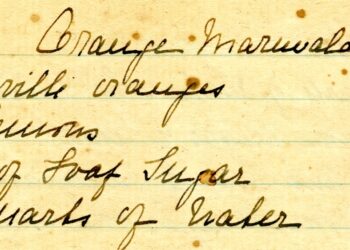 Orange Marmalad
ville oranges
emons
of Loaf Sugar
uarts of Water